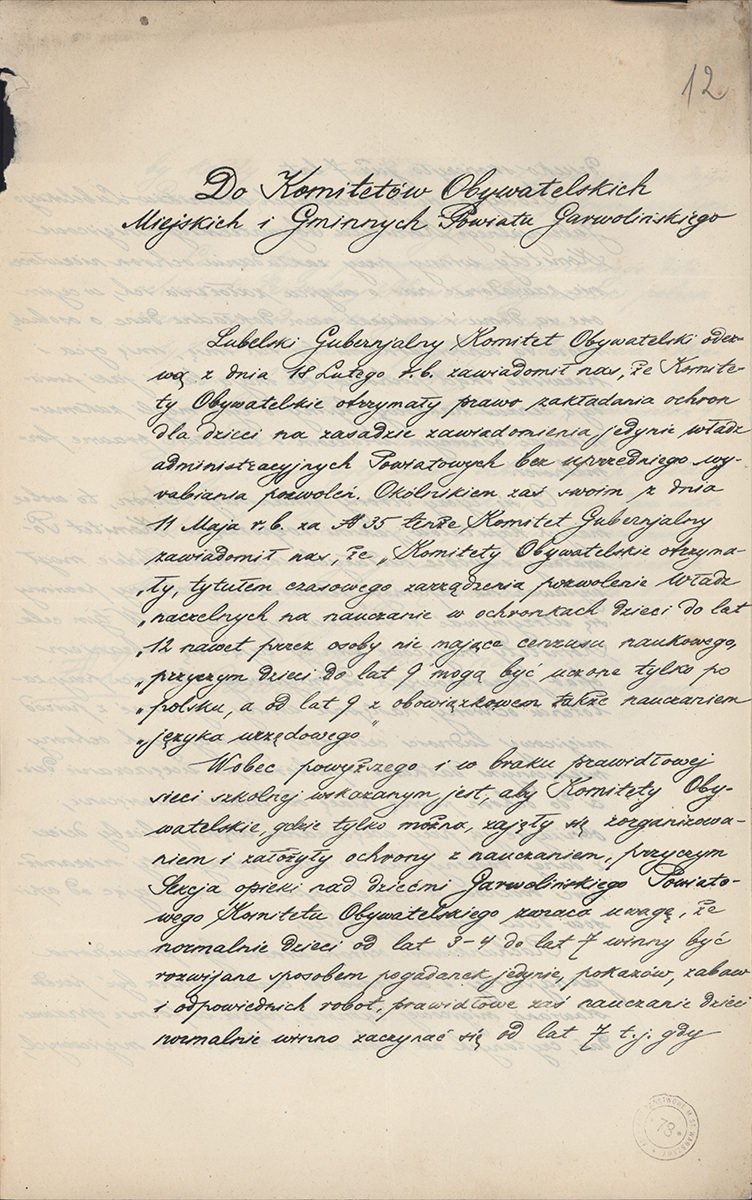 12
Do Komitetów Obywatelskich
Miejskich i Gminnych Powiatu Garwolińskiego
Lubelski Gubernjalny Komitet Obywatelski odez-
wą z dnia 18 Lutego r.b. zawiadomił nas, że Komite-
ty Obywatelskie otrzymały prawo zakładania ochron
dla dzieci na zasadzie zawiadomienia jedynie władz
administracyjnych Powiatowych bez uprzedniego wy-
rabiania pozwoleń. Okólnikiem zaś swoim z dnia
11 Maja r.b. za № 35 tenże Komitet Gubernjalny
zawiadomił nas, że „Komitety Obywatelskie otrzyma-
„ły, tytułem czasowego zarządzenia pozwolenie Władz
„naczelnych na nauczanie w ochronkach dzieci do lat
„12 nawet przez osoby nie mające cenzusu naukowego,
„przyczym dzieci do lat 9 mogą być uczone tylko po
„polsku, a od lat 9 z obowiązkowem także nauczaniem
„języka urzędowego"
Wobec powyższego i w braku prawidłowej
sieci szkolnej wskazanym jest, aby Komitety Oby-
watelskie, gdzie tylko można, zajęły się zorganizowa-
niem i założyły ochrony z nauczaniem, przyczym
Sekcja opieki nad dziećmi Garwolińskiego Powiato-
wego Komitetu Obywatelskiego zwraca uwagę, że
normalnie dzieci od lat 3-4 do lat 7 winny być
rozwijane sposobem pogadanek jedynie, pokazów, zabaw
i odpowiednich robót, prawidłowe zaś nauczanie dzieci
normalnie winno zaczynać się od lat 7 t.j. gdy
78